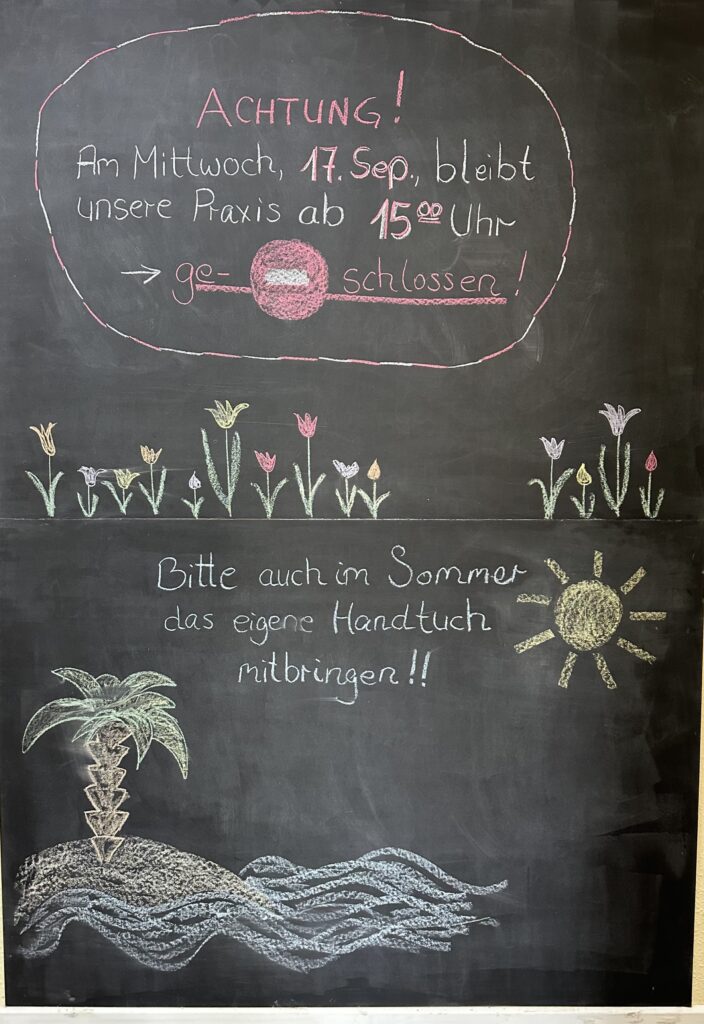 ACHTUNG!
Am Mittwoch, 17. Sep., bleibt
unsere Praxis ab 15⁰⁰ Uhr
→ ge- schlossen!
Bitte auch im Sommer
das eigene Handtuch
mitbringen!!